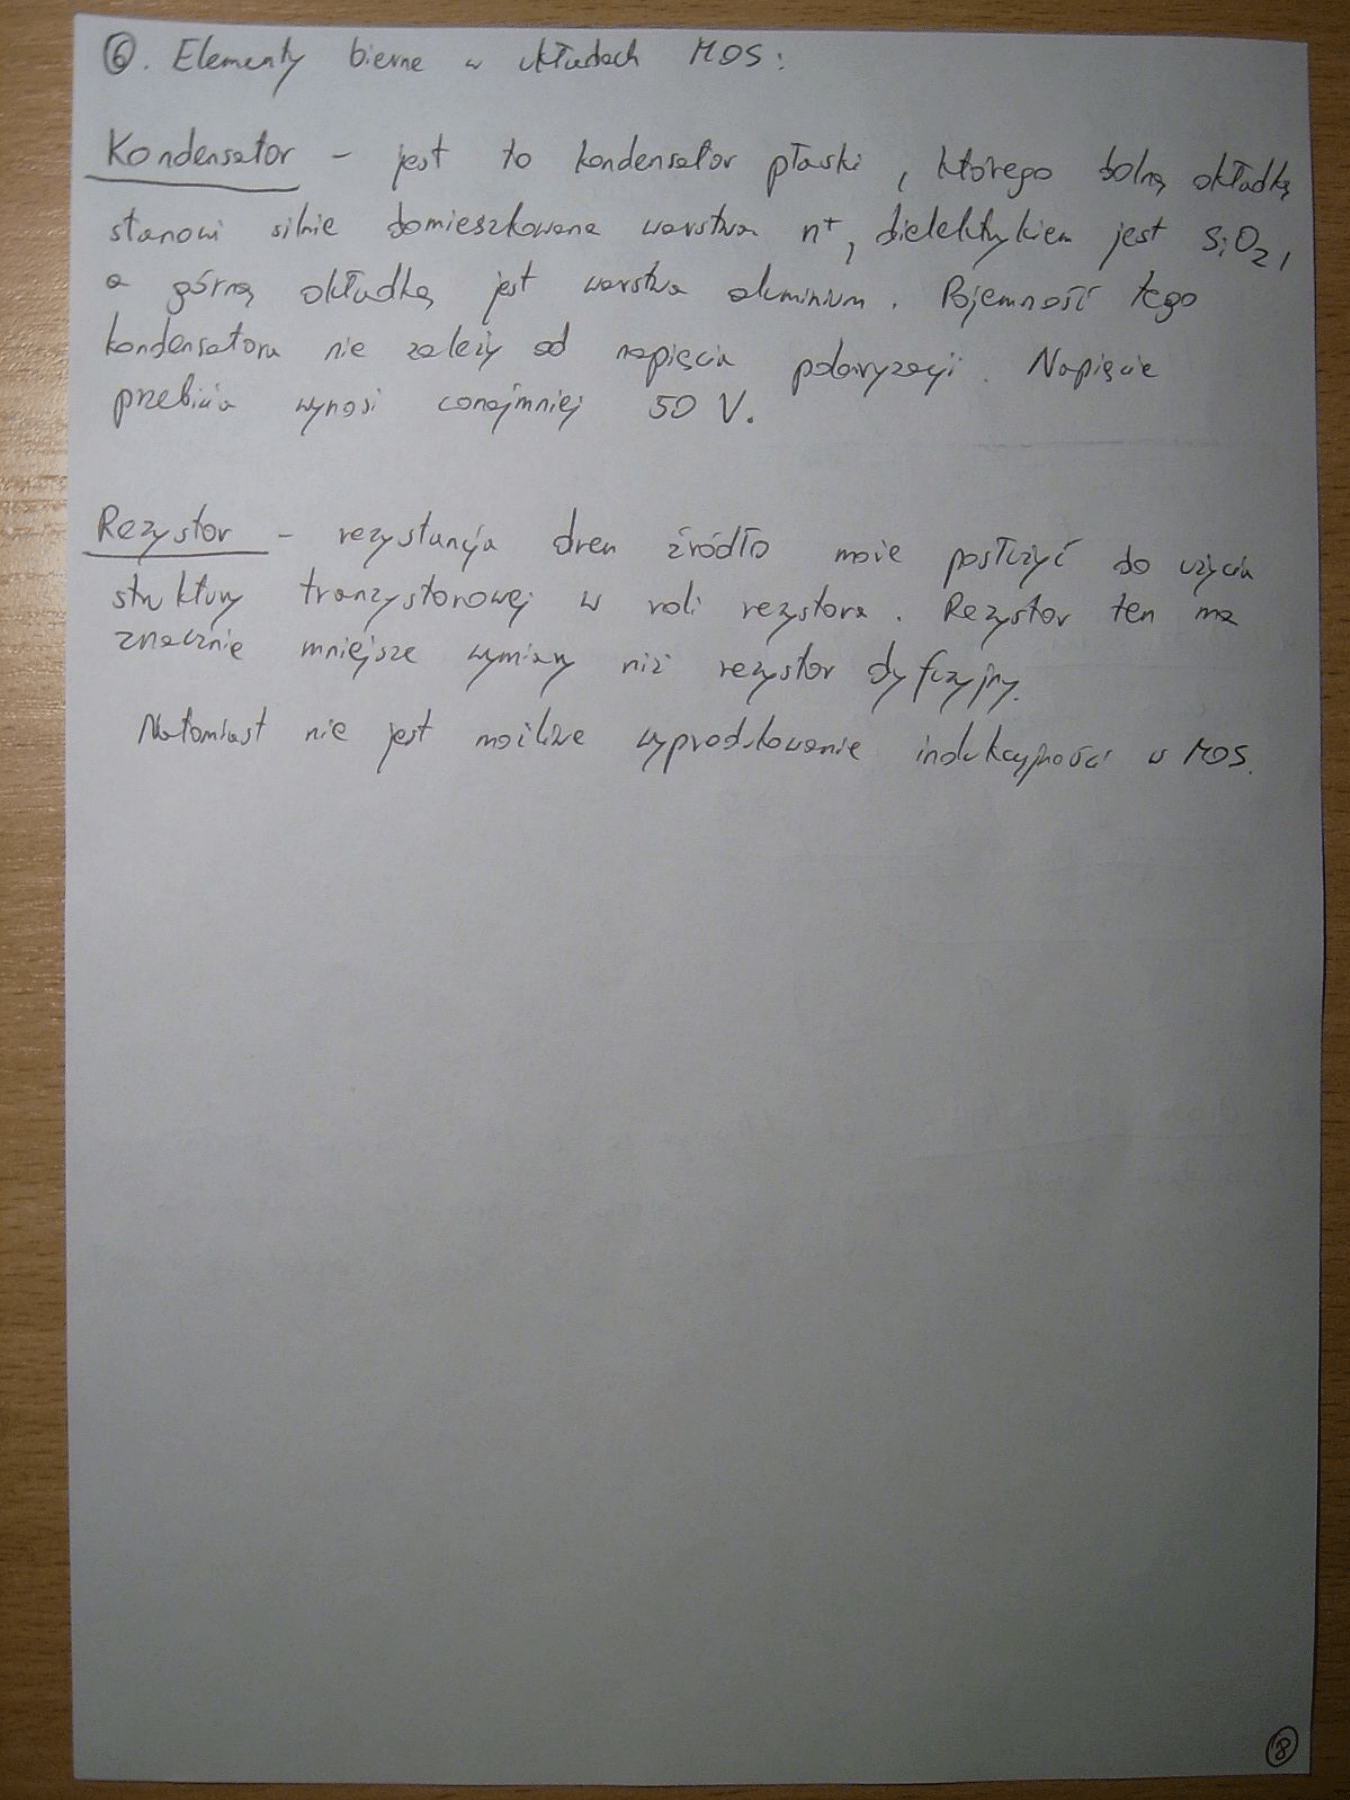 6. Elementy bierne w układach MOS:
Kondensator – jest to kondensator płaski, którego dolną okładkę
stanowi silnie domieszkowana warstwa n⁺, dielektrykiem jest SiO₂,
a górną okładką jest warstwa aluminium. Pojemność tego
kondensatora nie zależy od napięcia polaryzacji. Napięcie
przebicia wynosi conajmniej 50 V.
Rezystor – rezystancja dren źródło może posłużyć do użycia
struktury tranzystorowej w roli rezystora. Rezystor ten ma
znacznie mniejsze wymiary niż rezystor dyfuzyjny.
Natomiast nie jest możliwe wyprodukowanie indukcyjności w MOS.
8